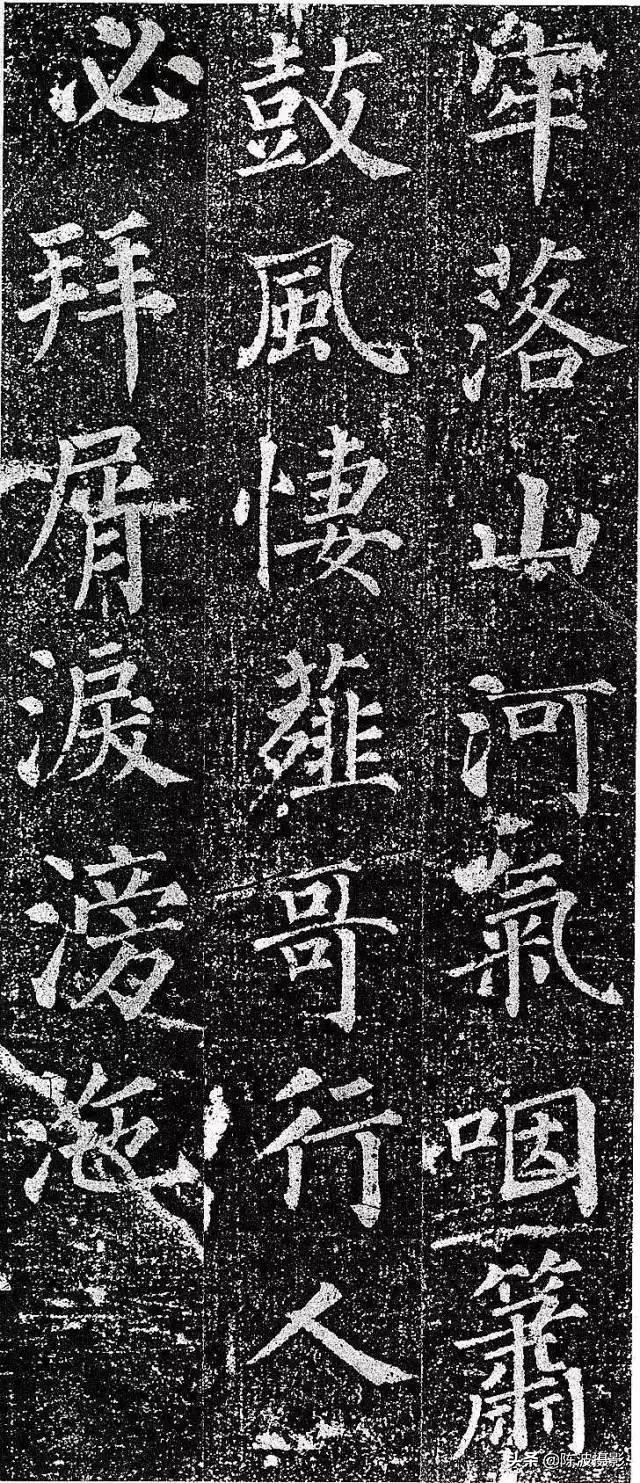 牢落山河氣咽簫
鼓風悽薤哥行人
必拜屑淚滂沲
头条 @陈波摄影